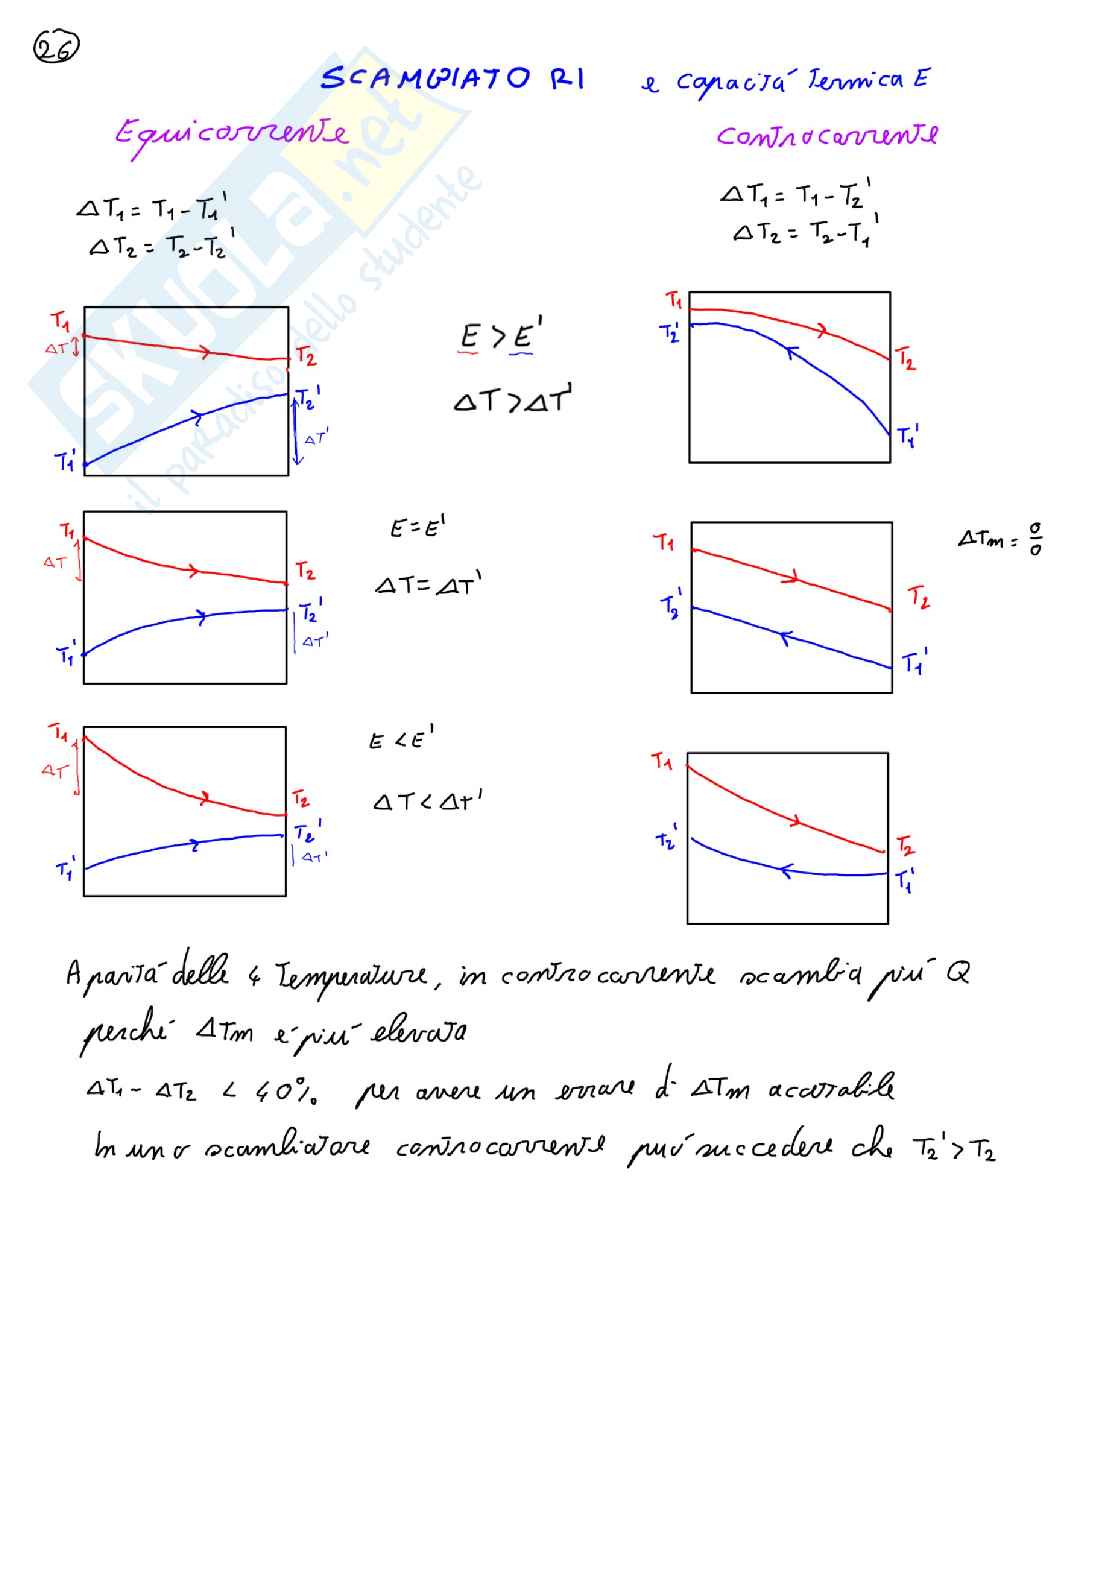 26
SCAMBIATORI e capacità termica E
Equicorrente
Controcorrente
ΔT1 = T1 - T1'
ΔT2 = T2 - T2'
ΔT1 = T1 - T2'
ΔT2 = T2 - T1'
T1
ΔT
T2
T2'
ΔT'
T1'
E > E'
ΔT > ΔT'
T1
T2'
T2
T1'
T1
ΔT
T2
T2'
ΔT'
T1'
E = E'
ΔT = ΔT'
T1
T2'
T2
T1'
ΔTm = 0/0
T1
ΔT
T2
T2'
ΔT'
T1'
E < E'
ΔT < Δt'
T1
T2'
T2
T1'
A parità delle 4 temperature, in controcorrente scambia più Q
perché ΔTm è più elevata
ΔT1 - ΔT2 < 40% per avere un errore di ΔTm accettabile
In uno scambiatore controcorrente può succedere che T2' > T2
SKUOLA.net
il paradiso dello studente